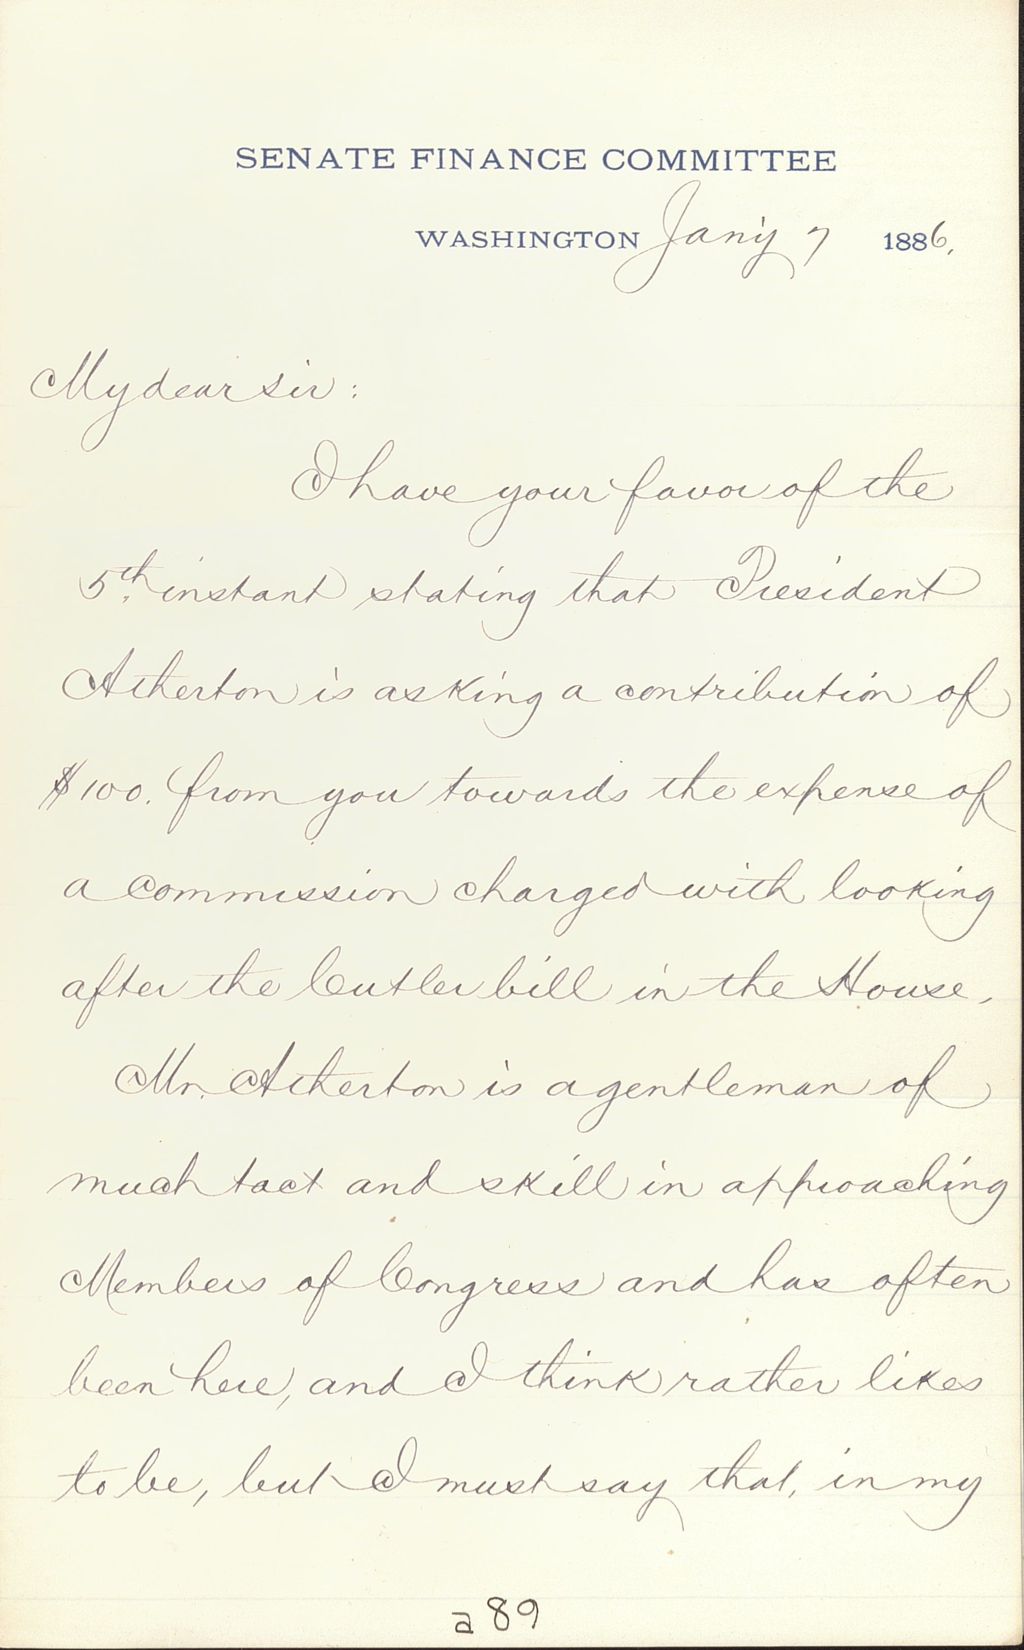 SENATE FINANCE COMMITTEE
WASHINGTON Jan'y 7 1886.
My dear sir:
I have your favor of the
5th. instant stating that President
Atherton is asking a contribution of
$100. from you towards the expense of
a commission charged with looking
after the Cutler bill in the House.
Mr. Atherton is a gentleman of
much tact and skill in approaching
Members of Congress and has often
been here, and I think rather likes
to be, but I must say that, in my
a89